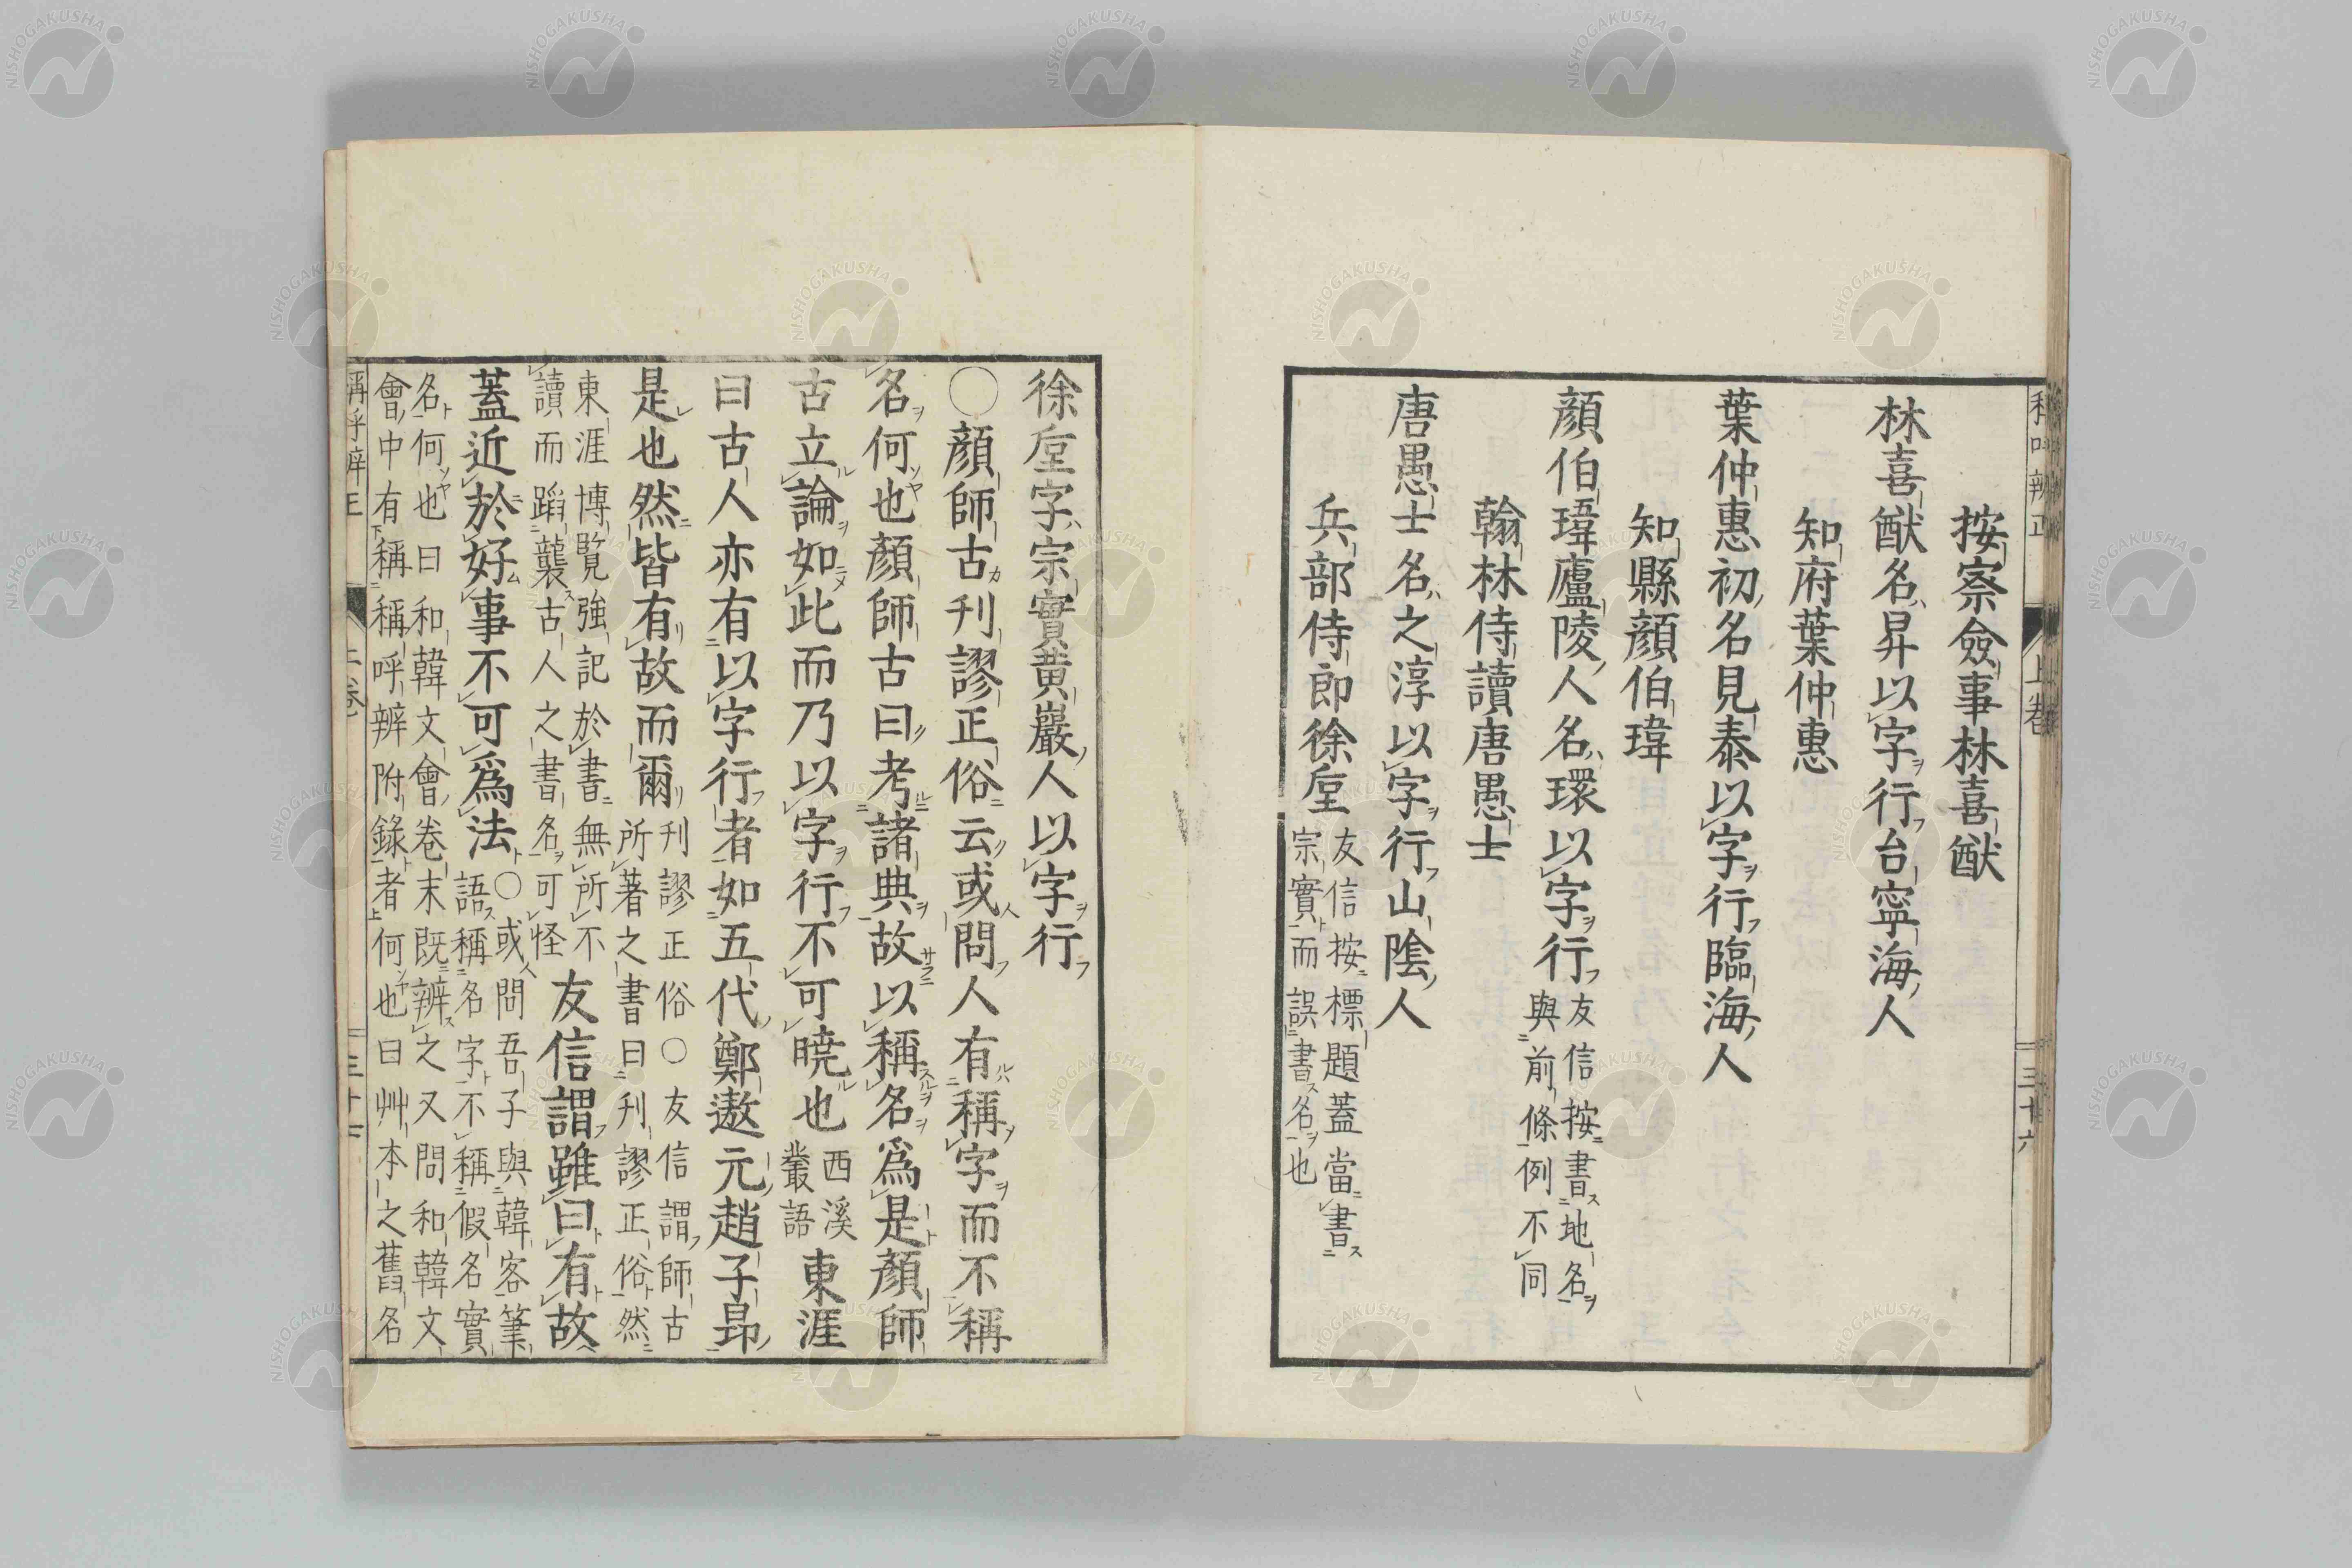 按察僉事林喜猷
林喜猷名昇以字行台寧海人
知府葉仲惠
葉仲惠初名見泰以字行臨海人
知縣顔伯瑋
顔伯瑋廬陵人名環以字行友信按書地名
與前條例不同
翰林侍讀唐愚士
唐愚士名之淳以字行山陰人
兵部侍郎徐垕友信按標題蓋當書
宗實而誤書名也
徐垕字宗實黄巖人以字行
〇顔師古刋謬正俗云或問人有稱字而不稱
名何也顔師古曰考諸典故以稱名爲是顔師
古立論如此而乃以字行不可曉也西溪
叢語東涯
曰古人亦有以字行者如五代鄭遨元趙子昻
是也然皆有故而爾刋謬正俗〇友信謂師古
所著之書曰刋謬正俗然
東涯博覧強記於書無所不
讀而蹈襲古人之書名可怪友信謂雖曰有故
蓋近於好事不可爲法〇或問吾子與韓客筆
語稱名字不稱假名實
名何也曰和韓文會卷末既辨之又問和韓文
會中有稱稱呼辨附錄者何也曰艸本之舊名
稱呼辨正 上卷 三十六
NISHOGAKUSHA